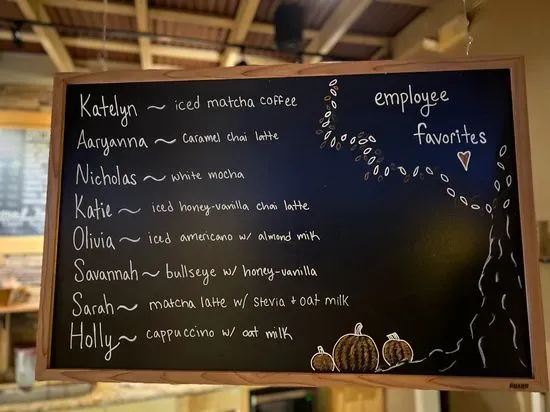 employee
favorites
Katelyn ~ iced matcha coffee
Aaryanna ~ caramel chai latte
Nicholas ~ white mocha
Katie ~ iced honey-vanilla chai latte
Olivia ~ iced americano w/ almond milk
Savannah ~ bullseye w/ honey-vanilla
Sarah ~ matcha latte w/ stevia + oat milk
Holly ~ cappuccino w/ oat milk